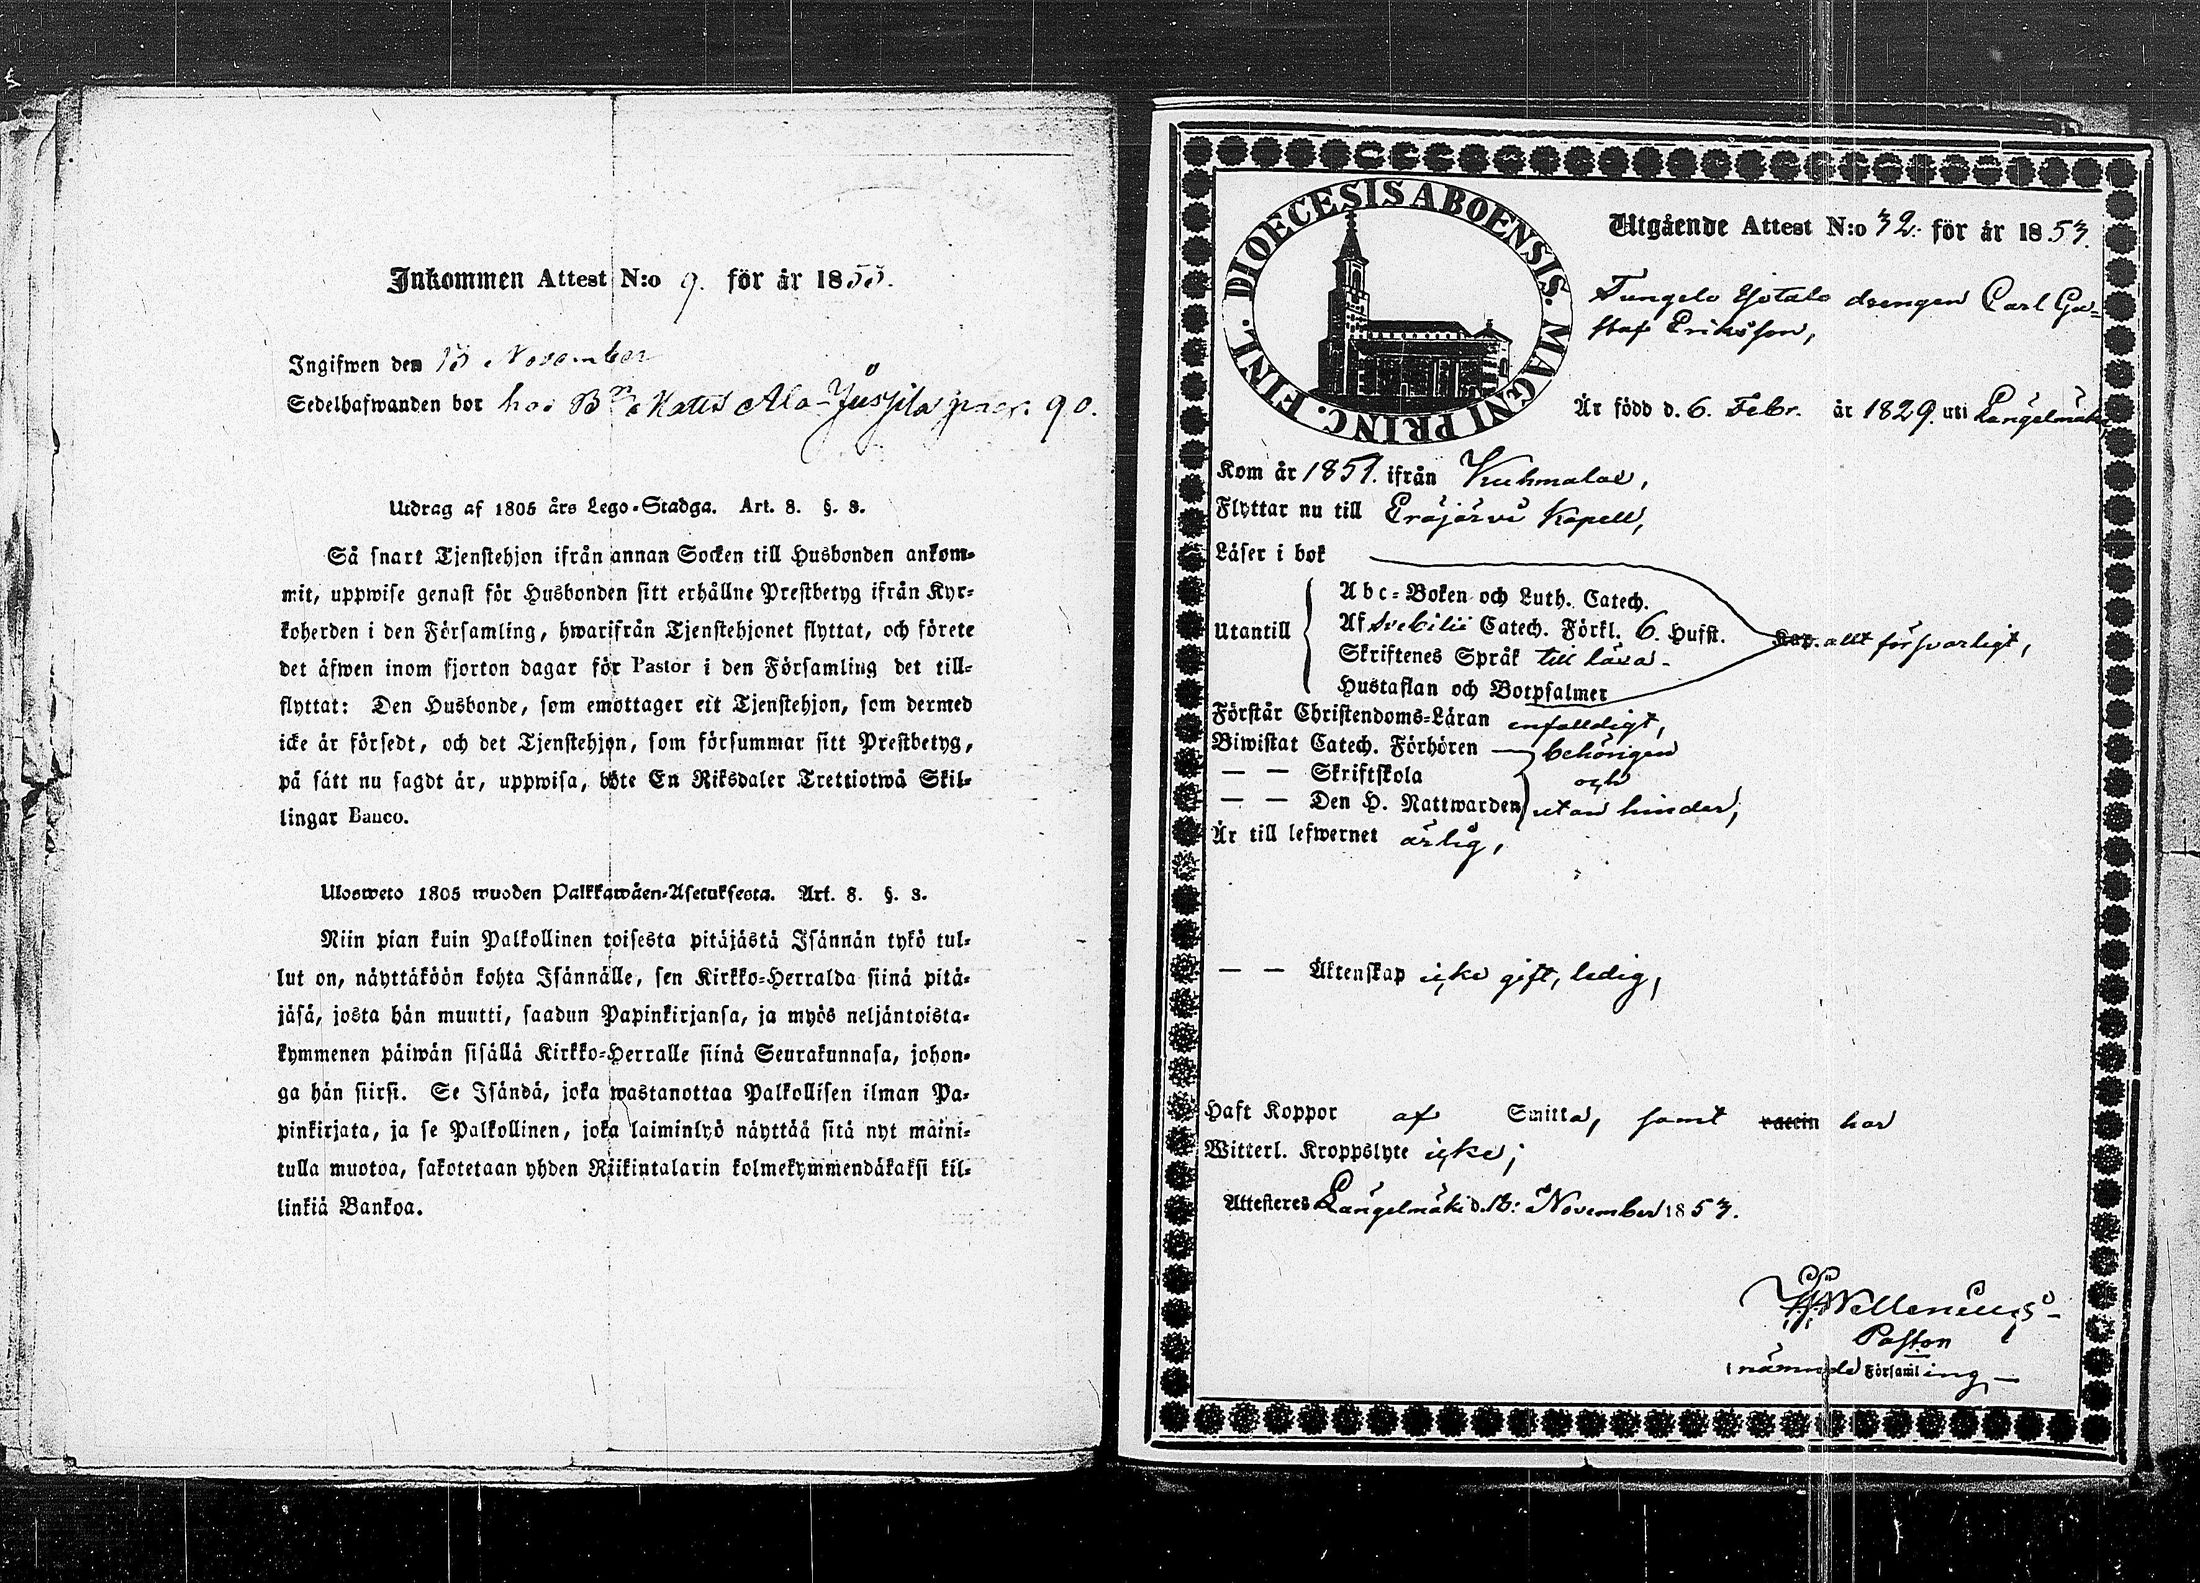 Inkommen Attest N:o 9. för år 1853.
Ingifwen den 13 November
Sedelhafwanden bor hos Matts Ala-Jussila 90.
Utdrag af 1805 års Lego-Stadga. Art. 8. §. 3.
Så snart Tjenstehjon ifrån annan Socken till Husbonden ankom-
mit, uppwise genast för Husbonden sitt erhållne Prestbetyg ifrån Kyr-
koherden i den Församling, hwarifrån Tjenstehjonet flyttat, och förete
det äfwen inom fjorton dagar för Pastor i den Församling det till-
flyttat: Den Husbonde, som emottager ett Tjenstehjon, som dermed
icke är försedt, och det Tjenstehjon, som försummar sitt Prestbetyg,
på sätt nu sagdt är, uppwisa, böte En Riksdaler Trettiotwå Skil-
lingar Banco.
Ulosweto 1805 wuoden Palkkawäen-Asetuksesta. Art. 8. §. 3.
Niin pian kuin Palkollinen toisesta pitäjästä Isännän tykö tul-
lut on, näyttäköön kohta Isännälle, sen Kirkko-Herralda siinä pitä-
jäsä, josta hän muutti, saadun Papinkirjansa, ja myös neljäntoista-
kymmenen päiwän sisällä Kirkko-Herralle siinä Seurakunnasa, johon-
ga hän siirsi. Se Isändä, joka wastanottaa Palkollisen ilman Pa-
pinkirjata, ja se Palkollinen, joka laiminlyö näyttää sitä nyt maini-
tulla muotoa, sakotetaan yhden Riikintalarin kolmekymmendäkaksi kil-
linkiä Bankoa.
DIOECESIS ABOENSIS. MAGNI PRINC. FINL.
Utgående Attest N:o 32. för år 1853.
drengen Carl Gu-
staf Eriksson,
Är född d. 6. Febr. år 1829. uti Längelmäki
Kom år 1851. ifrån Kuhmalax,
Flyttar nu till Eräjärvi Kapell,
Läser i bok
Utantill
Abc-Boken och Luth. Catech.
Af Svebilii Catech. Förkl. 6. Hufst. Kap. allt försvarligt,
Skriftenes Språk till lära.
Hustaflan och Botpsalmer
Förstår Christendoms-Läran enfalldigt,
Biwistat Catech. Förhören behörigen
— — Skriftskola och
— — Den H. Nattwarden utan hinder,
Är till lefwernet ärlig,
— — Äktenskap icke gift, ledig,
Haft Koppor af Smitta, samt vaccin har
Witterl. Kroppslyte icke;
Attesteres Längelmäki d. 13: November 1853.
Wellenius
Pastor
i nämnde Församling